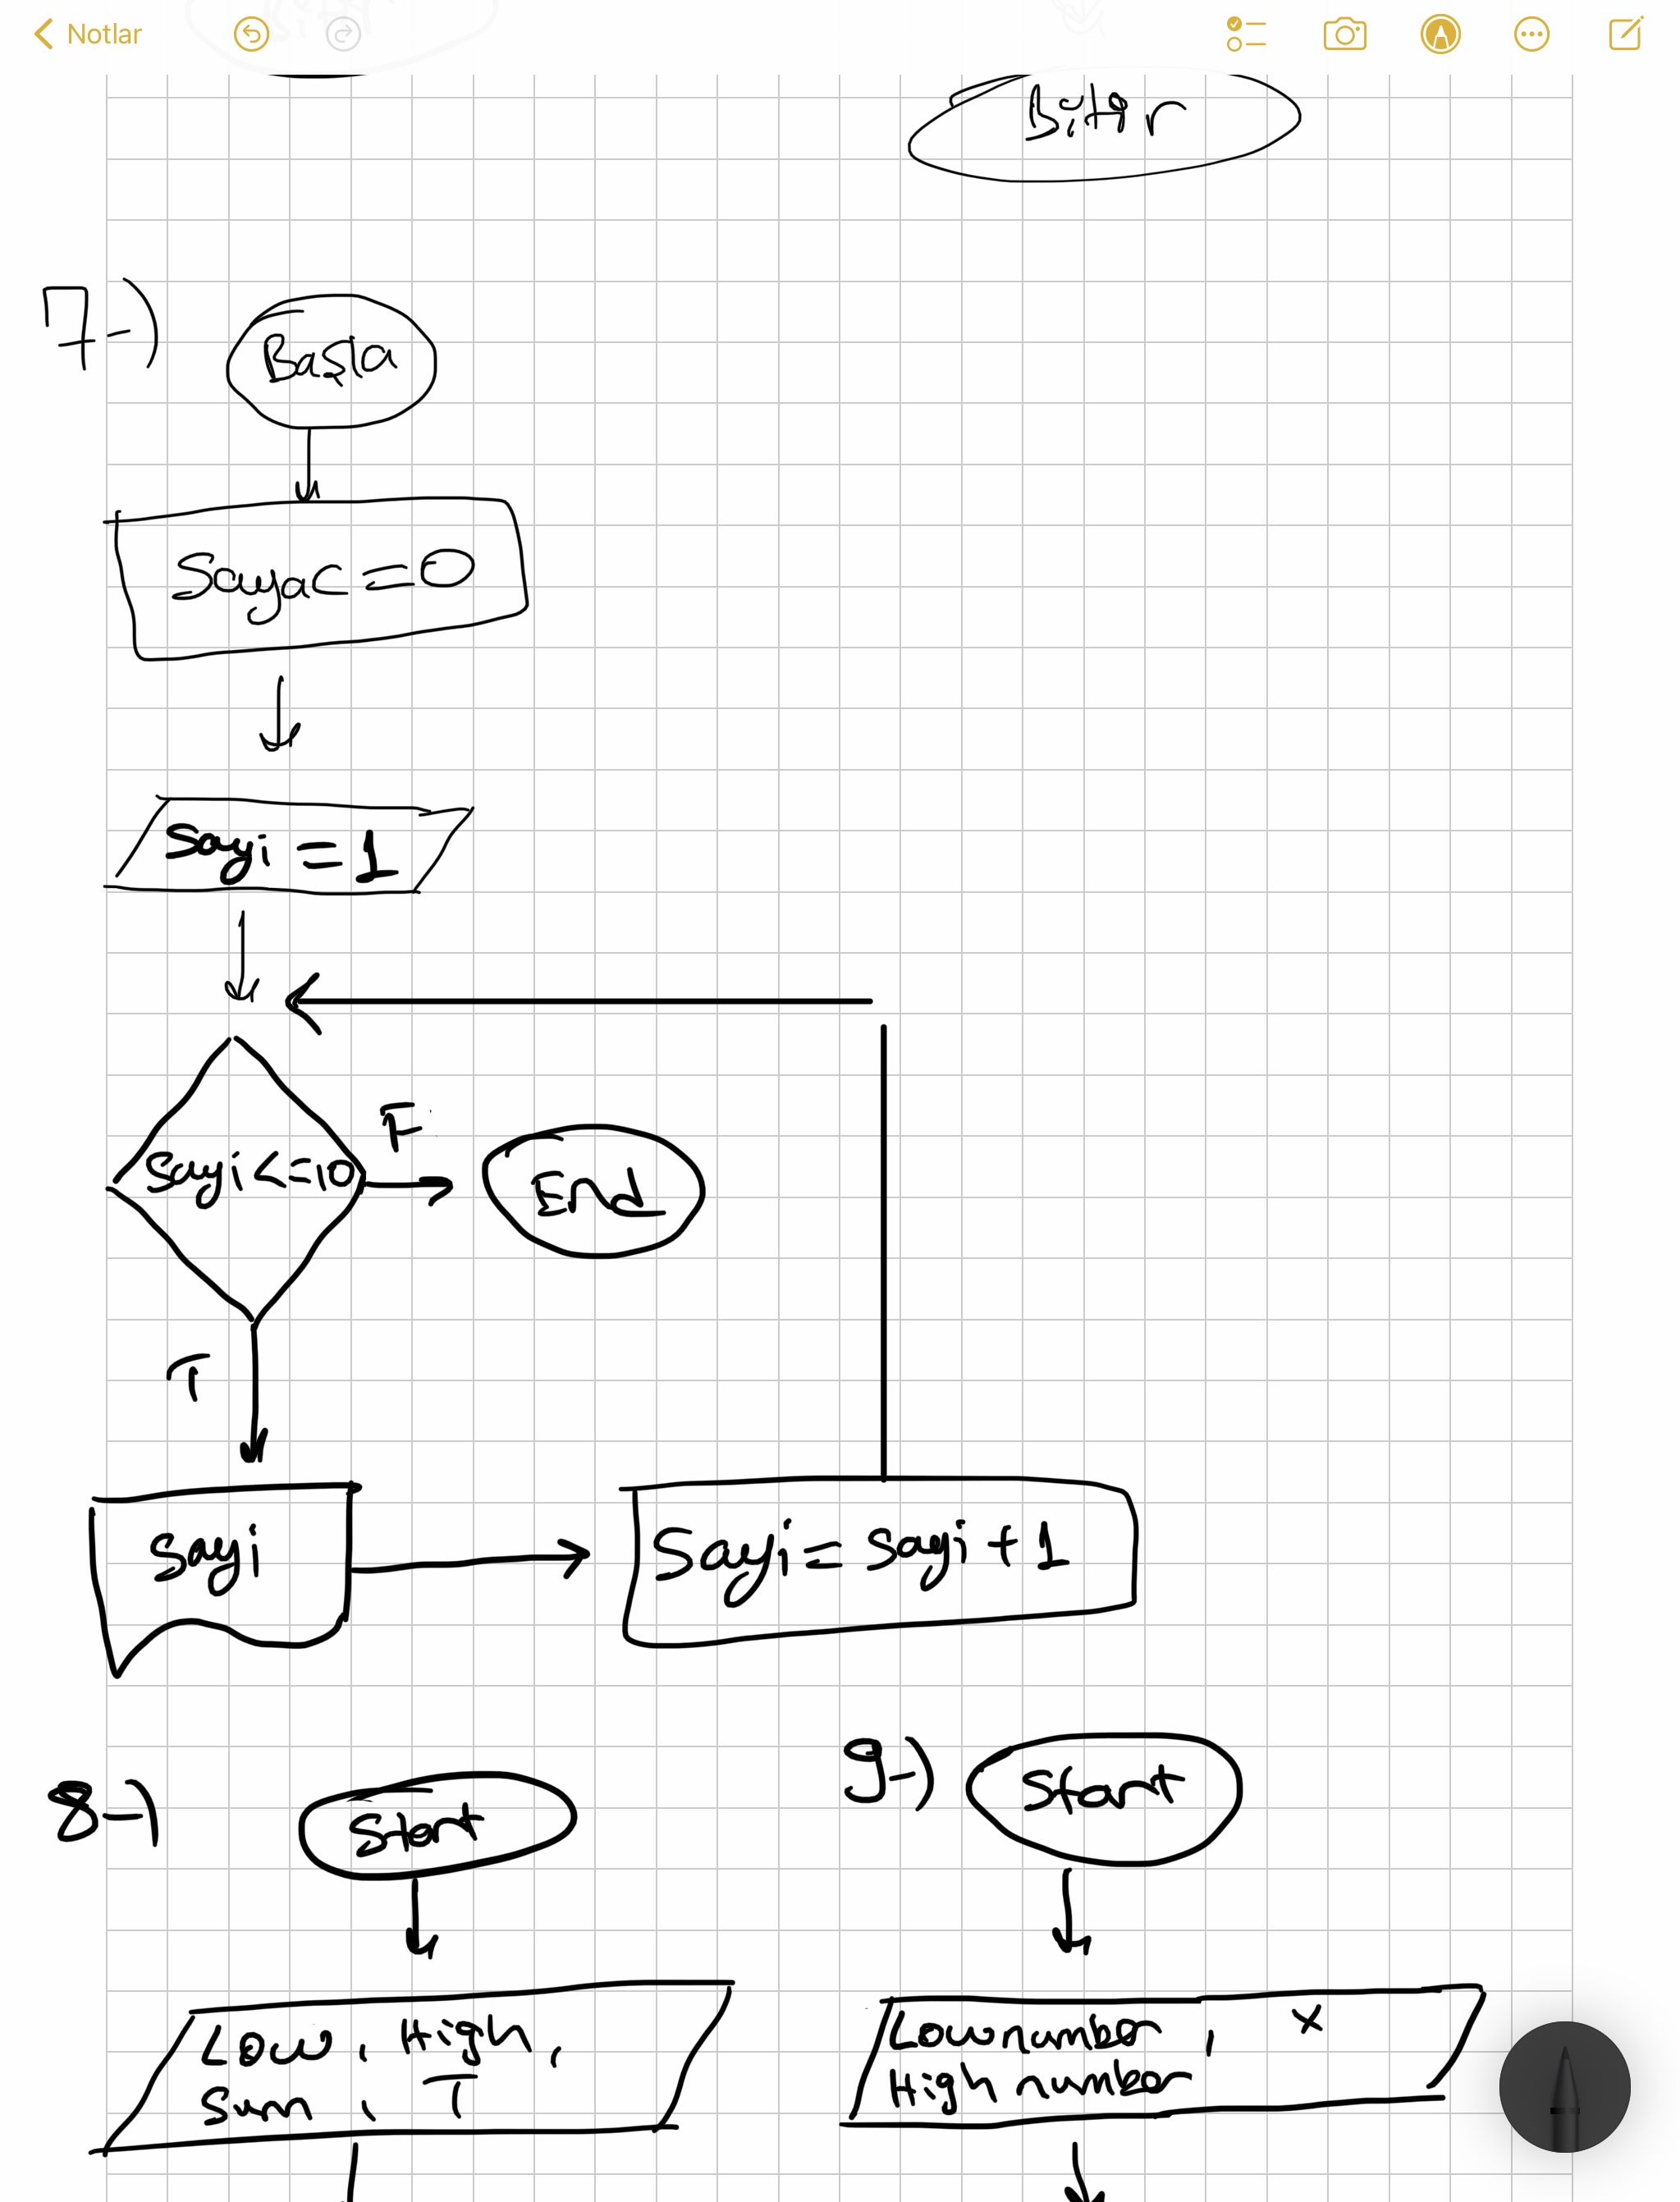 Notlar
Bitir
7-)
Başla
Sayac = 0
Sayi = 1
Sayi <= 10
F
End
T
Sayi
Sayi = Sayi + 1
8-)
Start
Low, High,
Sum, T
9-)
Start
Low number, x
High number